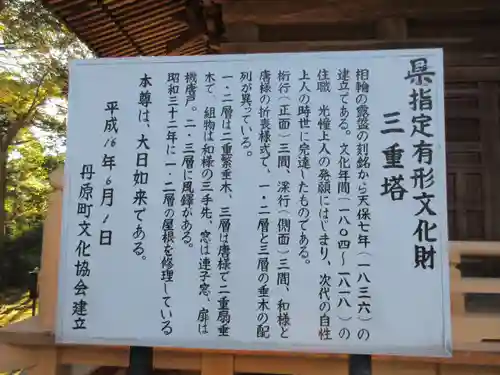 県指定有形文化財
三重塔
相輪の露盤の刻銘から天保七年(一八三六)の
建立である。文化年間(一八〇四〜一八一八)の
住職 光憧上人の発願にはじまり、次代の自性
上人の時世に完達したものである。
桁行(正面)三間、梁行(側面)三間、和様と
唐様の折衷様式で、一・二層と三層の垂木の配
列が異っている。
一・二層は二重繁垂木、三層は唐様で二重扇垂
木で、組物は和様の三手先、窓は連子窓、扉は
桟唐戸。二・三層に風鐸がある。
昭和三十二年に一・二層の屋根を修理している
本尊は、大日如来である。
平成16年6月1日
丹原町文化協会建立